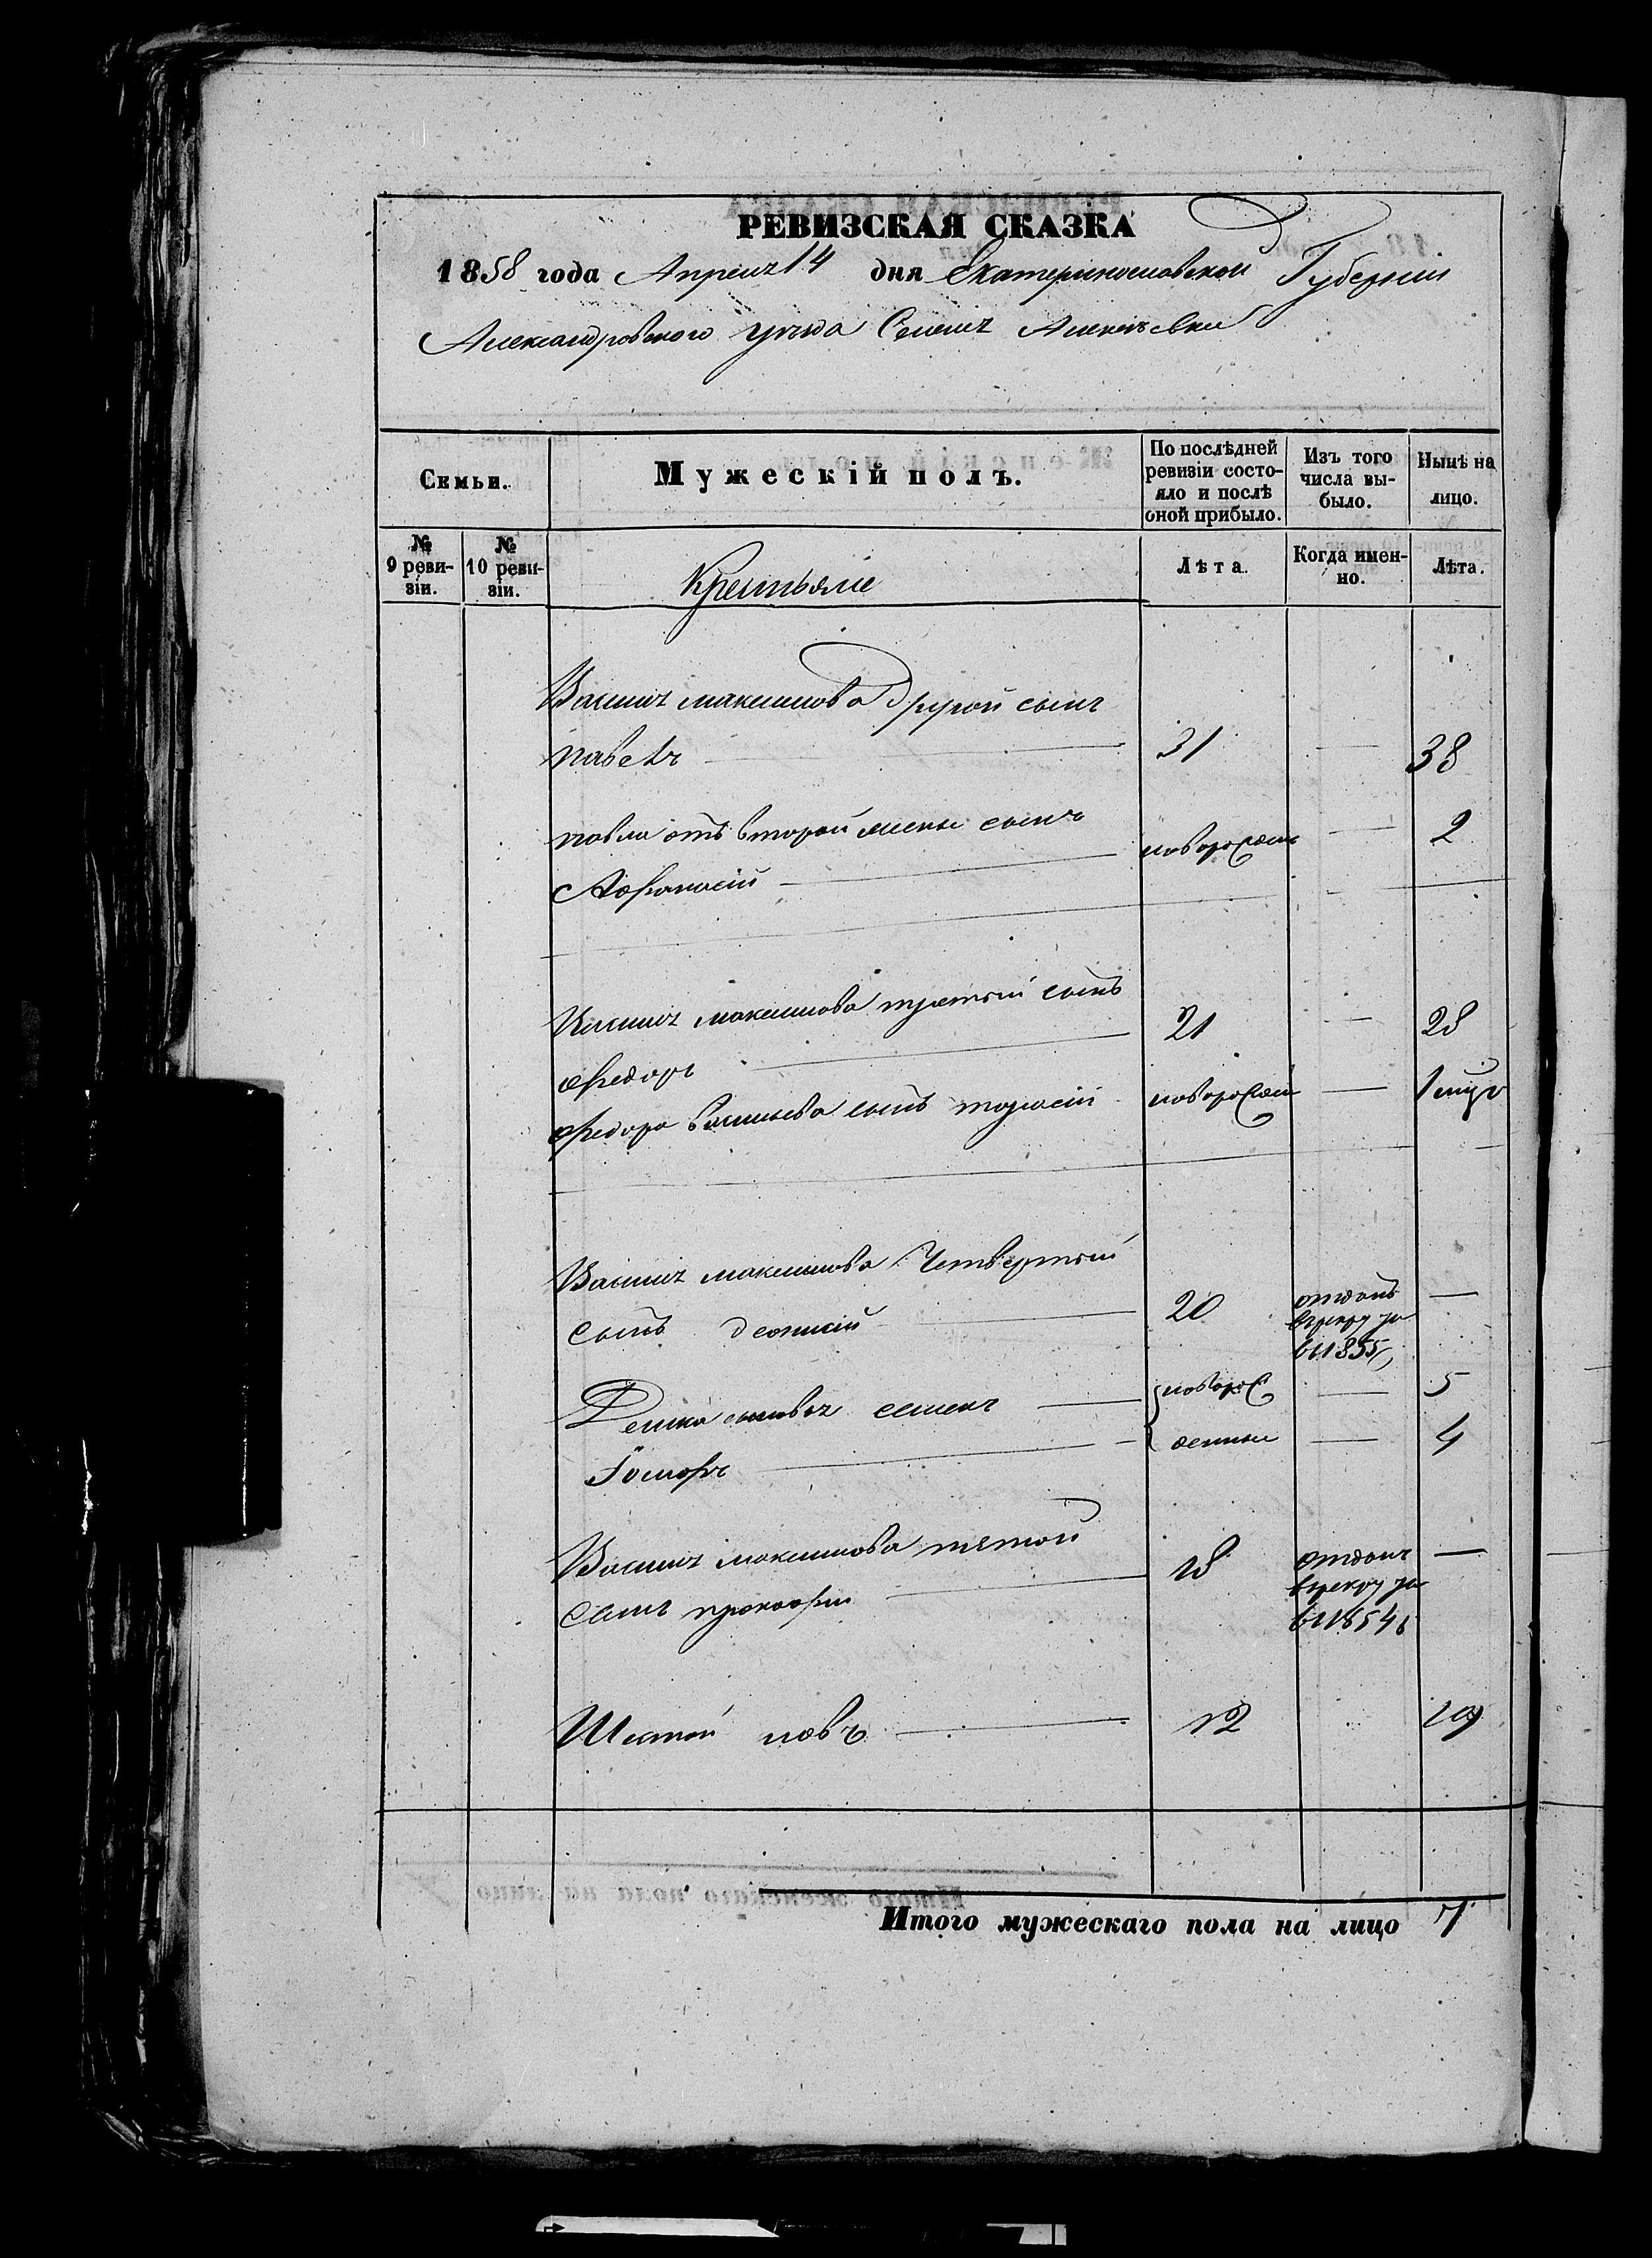 РЕВИЗСКАЯ СКАЗКА
1858 года Апреля 14 дня Екатеринославской Губернии
Александровского уезда Селения Алексеевки
Семьи.
Мужескій полъ.
По послѣдней ревизіи состояло и послѣ оной прибыло.
Изъ того числа выбыло.
Нынѣ на лицо.
№ 9 ревизіи.
№ 10 ревизіи.
Крестьяне
Лѣта.
Когда именно.
Лѣта.
Василия максимова другой сынъ
павелъ 31 — 38
павла отъ второй жены сынъ
Афанасий новорожден — 2
Василия максимова третий сынъ
федоръ 21 — 28
федора васильева сынъ новорожден —
Василия максимова Четвертый
сынъ 20 отданъ
в рекру
в 1855 —
сыновья семенъ новорож — 5
денные — 4
Василия максимова пятой
сынъ прокофий 18 отданъ
в рекру
в 1854 —
Шестой 12 19
Итого мужескаго пола на лицо 7